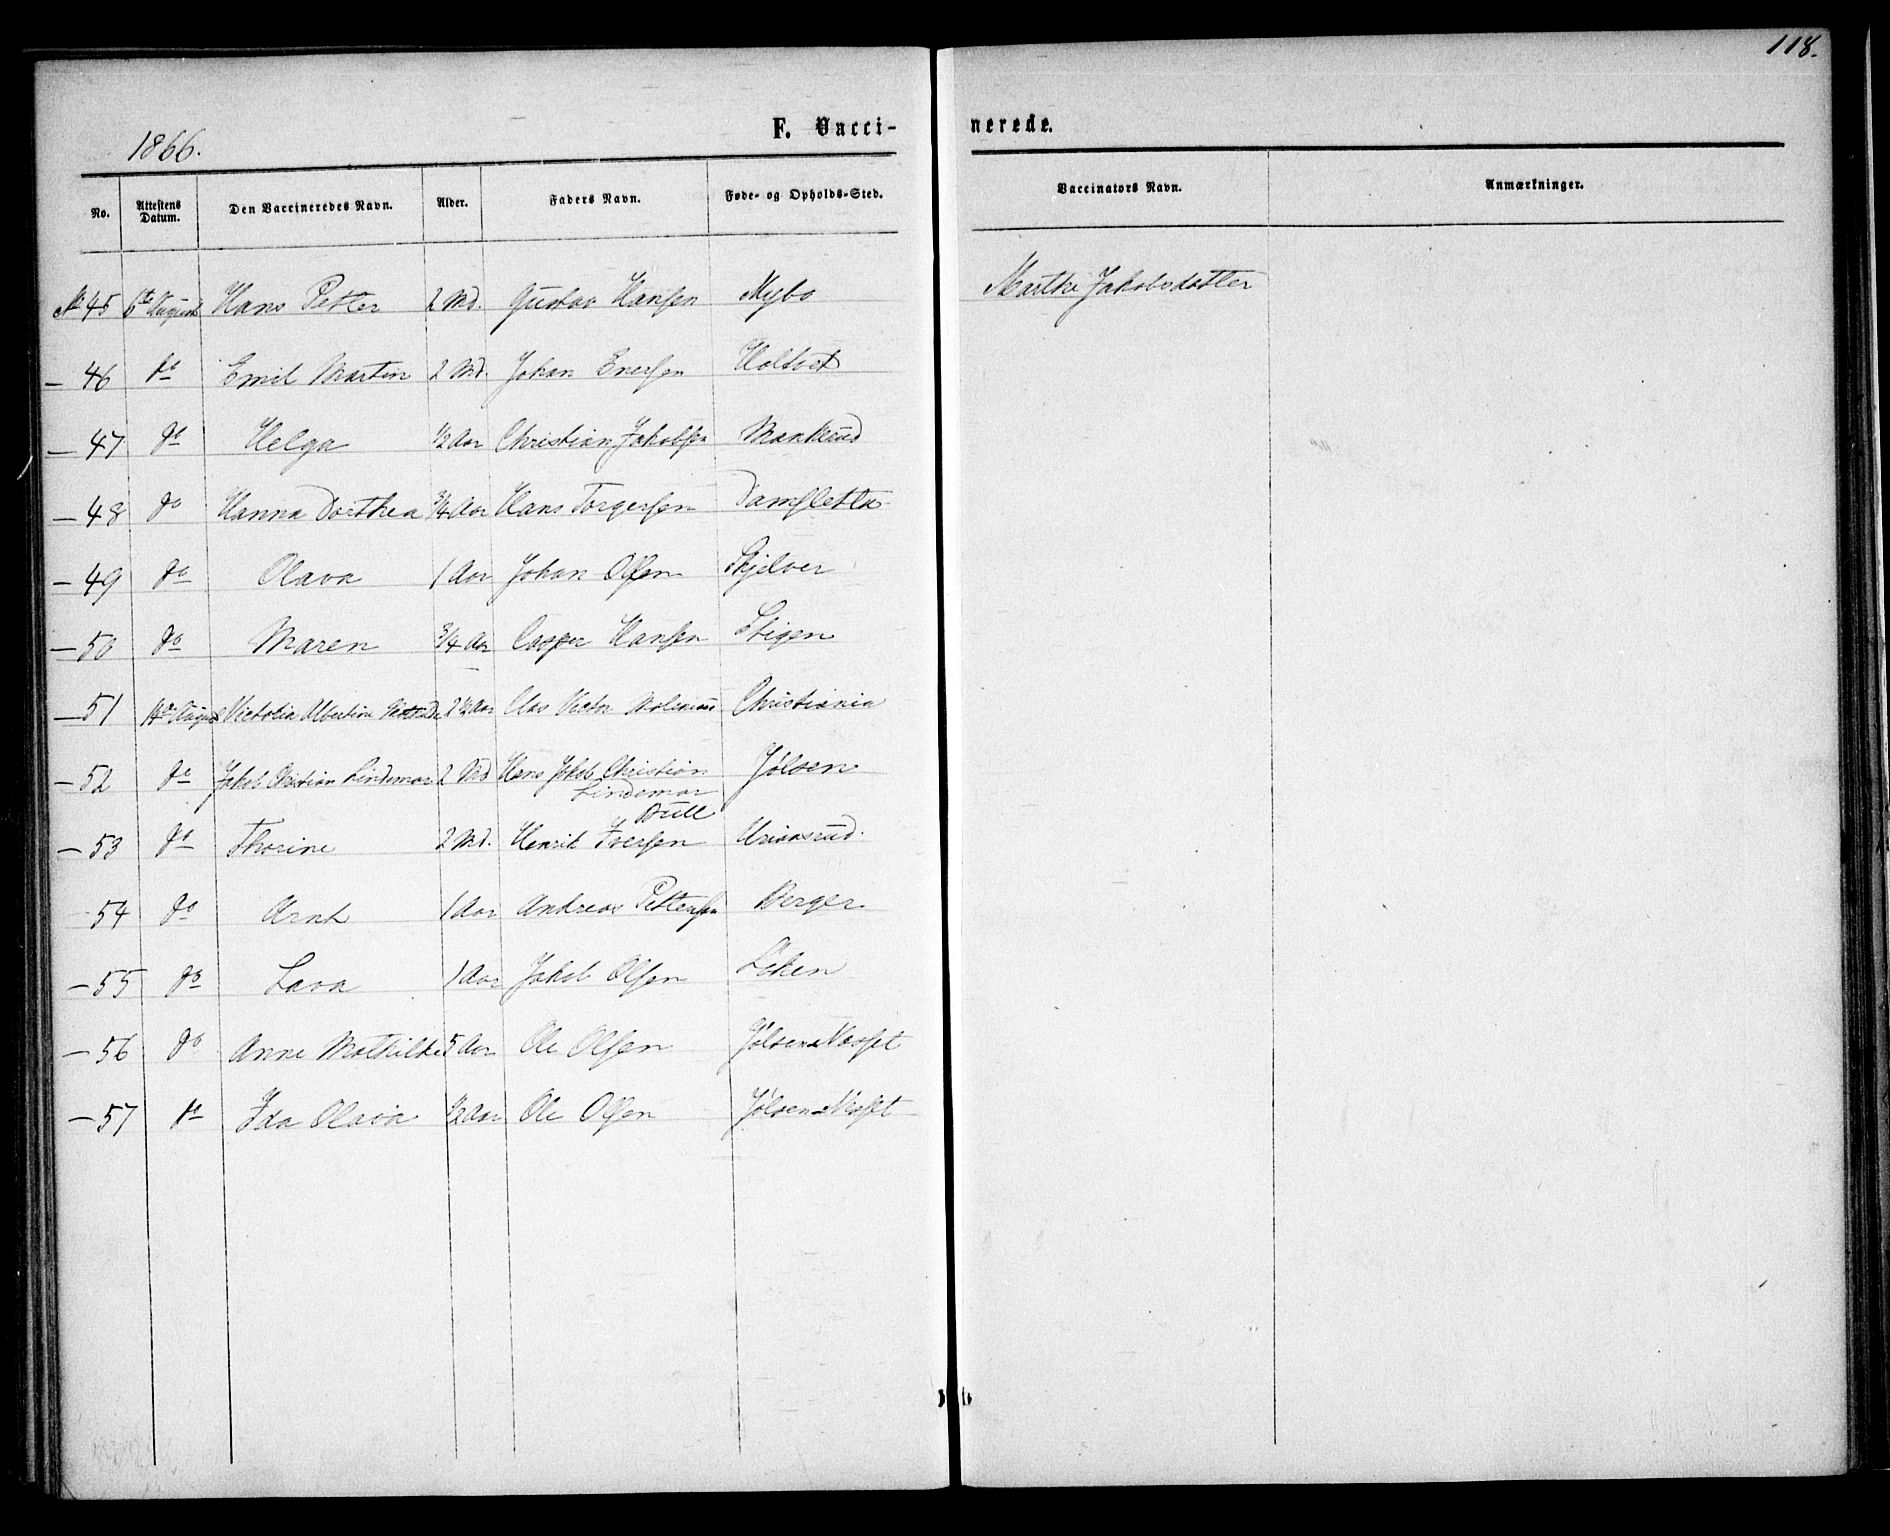 118.
1866.
F. Vaccinerede.
No. Attestens Datum. Den Vaccineredes Navn. Alder. Faders Navn. Føde- og Opholds-Sted. Vaccinators Navn. Anmærkninger.
No 45 6te August Hans Petter 2 Md. Gustav Hansen Nybo Marthe Jakobsdatter
— 46 do Emil Martin 2 Md. Johan Enersen Holtvet
— 47 do Helga ½ Aar Christian Jakobsen Mankerud
— 48 do Hanna Dorthea ¾ Aar Hans Torgersen Damsletta
— 49 do Olava 1 Aar Johan Olsen Skjelver
— 50 do Maren ¾ Aar Casper Hansen Stigen
— 51 August Victoria Albertine 2½ Aar Clas Victor Christiania
— 52 do Jakob Christian Lindemar 2 Md Hans Jakob Christian Jølsen
Lindemar
Bull
— 53 do Thorine 2 Md. Henrik Iversen
54 do Arnt 1 Aar Andreas Pettersen Berger
— 55 do Lava 1 Aar Jakob Olsen Løken
— 56 do Anne Mathilde 5 Aar Ole Olsen Jølsen Næsset
— 57 do Ida Olava ½ Aar Ole Olsen Jølsen Næsset